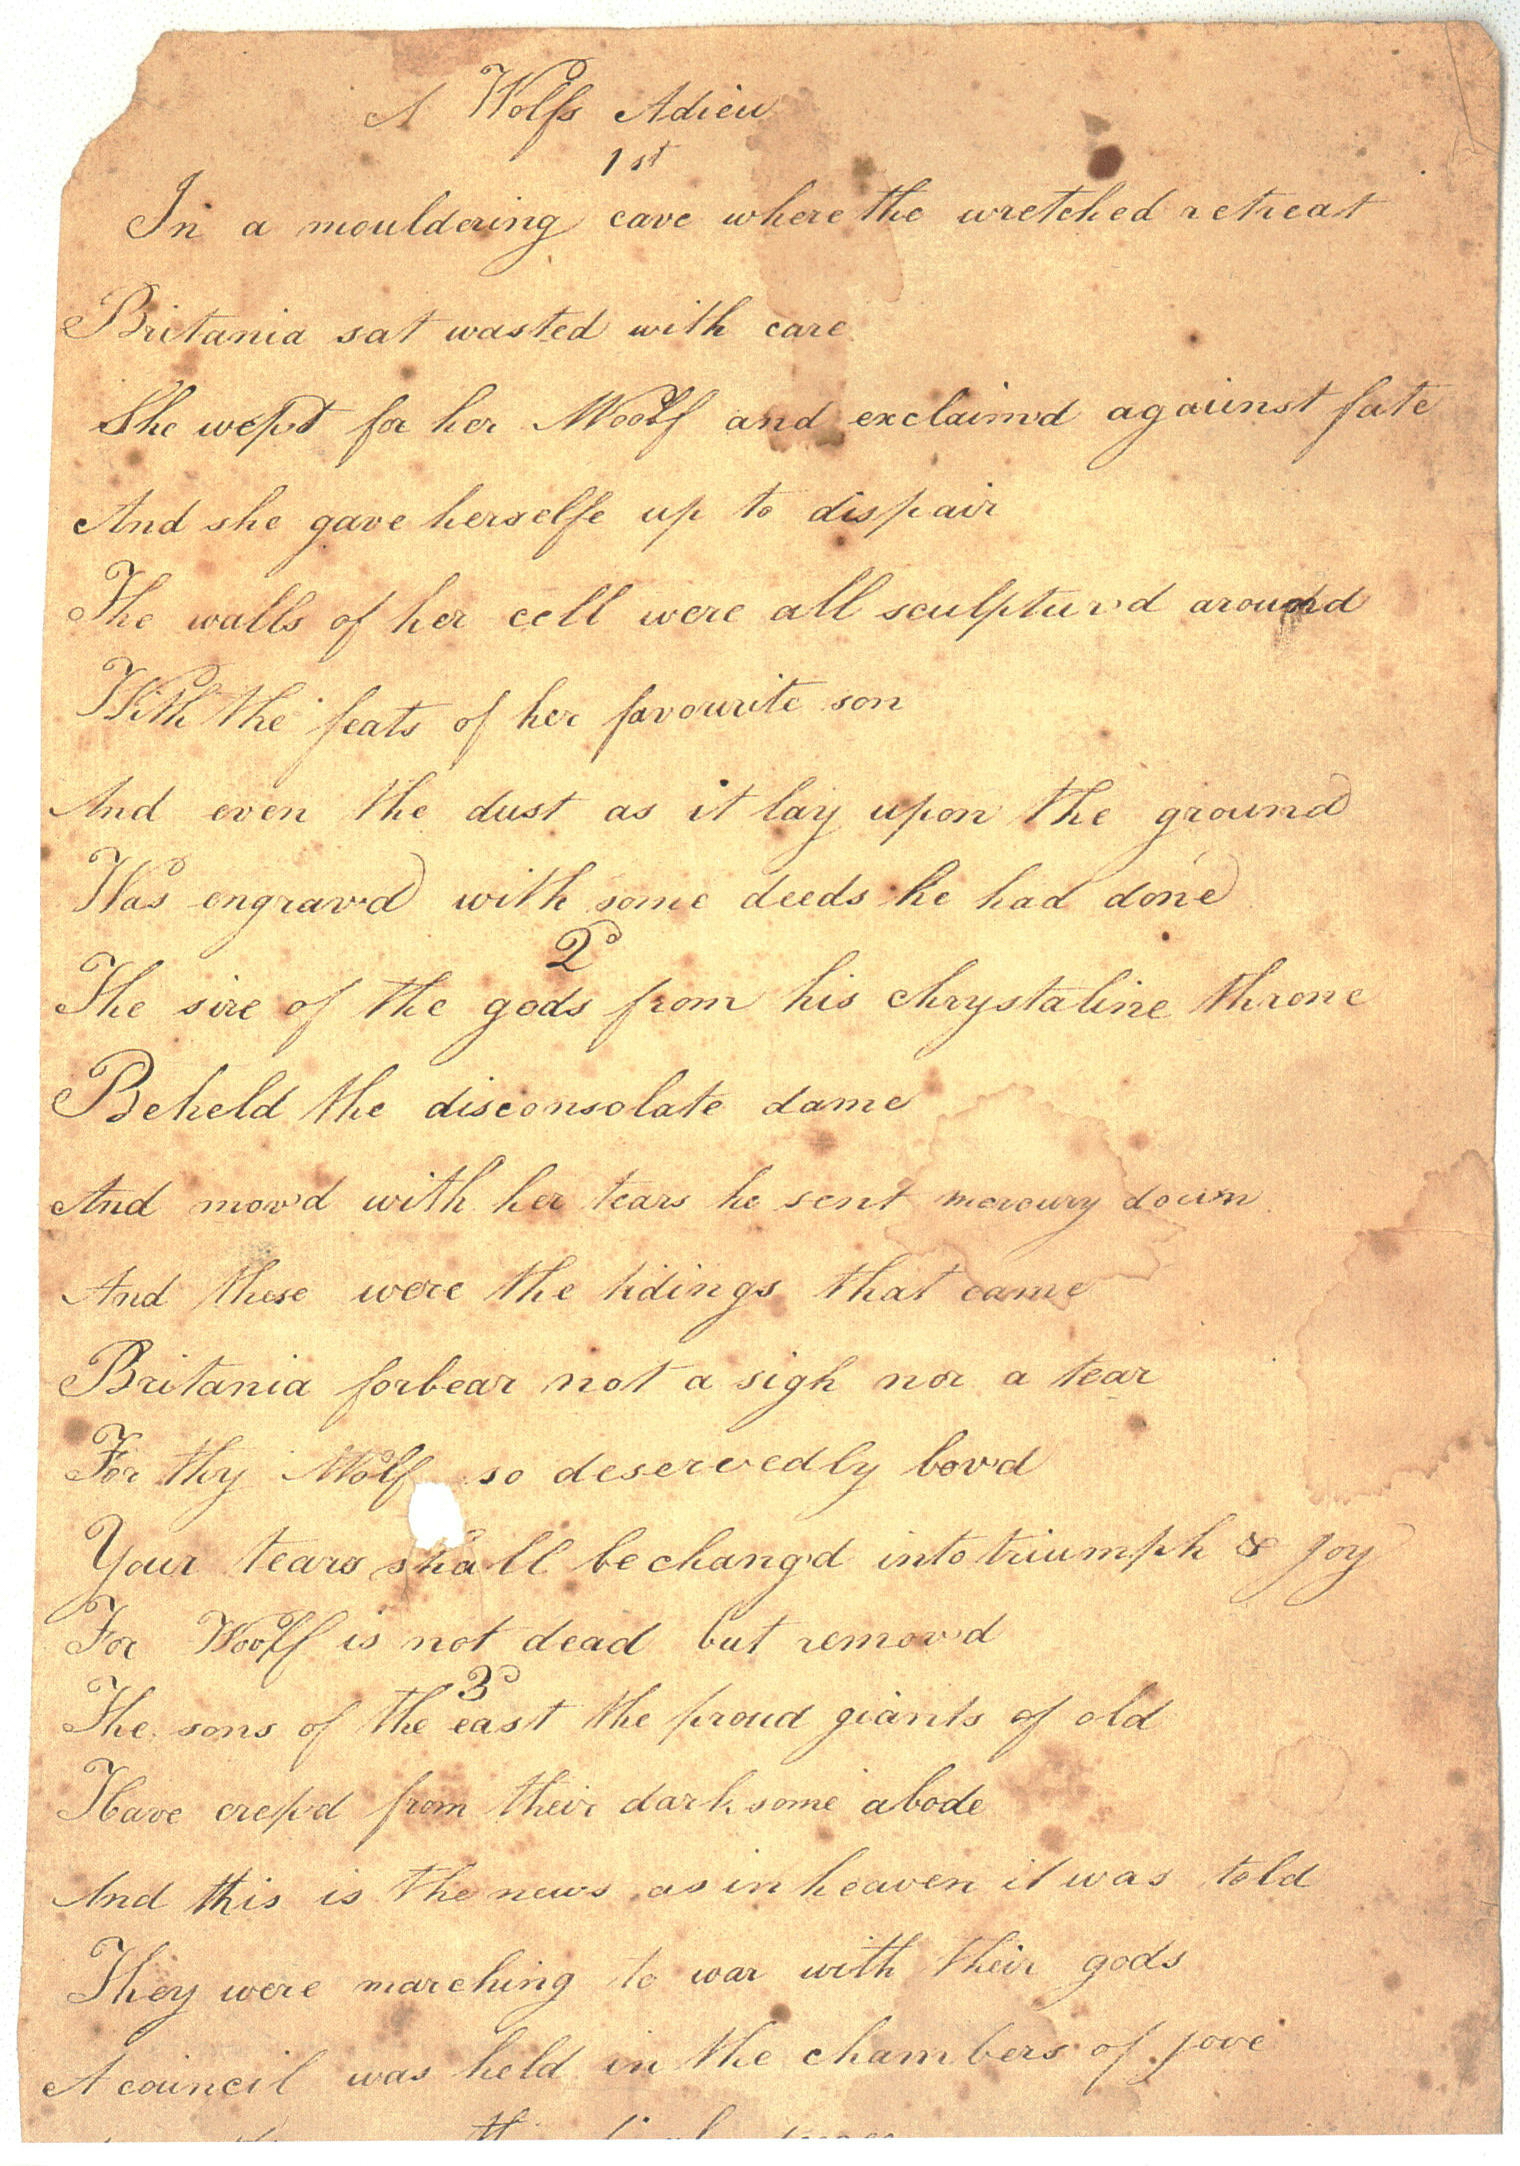 A Wolfs Adieu
1st
In a mouldering cave where the wretched retreat
Britania sat wasted with care
She wept for her Woolf and exclaim'd against fate
And she gave herselfe up to dispair
The walls of her cell were all sculptur'd around
With the feats of her favourite son
And even the dust as it lay upon the ground
Was engrav'd with some deeds he had done
2d
The sire of the gods from his chrystaline throne
Beheld the disconsolate dame
And mov'd with her tears he sent mercury down
And these were the tidings that came
Britania forbear not a sigh nor a tear
For thy Wolf so deservedly lov'd
Your tears shall be chang'd into triumph & joy
For Woolf is not dead but remov'd
3d
The sons of the east the proud giants of old
Have crep'd from their darksome abode
And this is the news as in heaven it was told
They were marching to war with their gods
A council was held in the chambers of jove